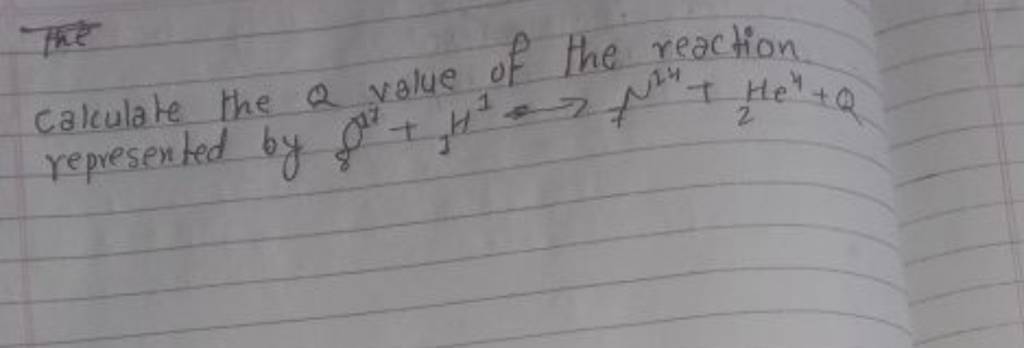 The
calculate the Q value of the reaction
represented by ₈O¹⁷ + ₁H¹ → ₇N¹⁴ + ₂He⁴ + Q